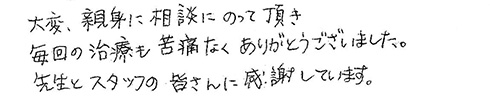 大変、親身に相談にのって頂き
毎回の治療も苦痛なくありがとうございました。
先生とスタッフの皆さんに感謝しています。